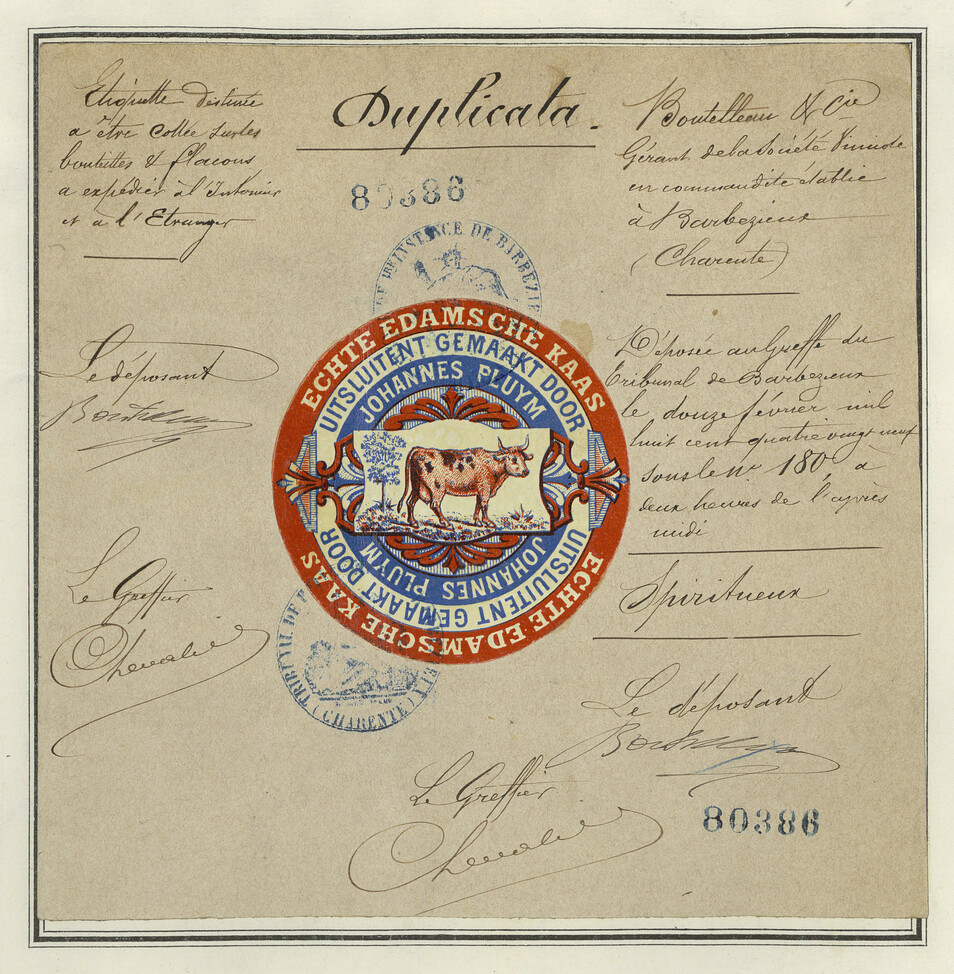 Duplicata.
Etiquette destinée
a être collée sur les
bouteilles & flacons
a expédier à l'Interieur
et a l'Etranger
80386
Bouteilleau & Cie
Gérant de la Société Vinicole
en commandite établie
à Barbezieux
(Charente)
INSTANCE DE BARBEZIE
ECHTE EDAMSCHE KAAS
UITSLUITENT GEMAAKT DOOR
JOHANNES PLUYM
JOHANNES PLUYM
UITSLUITENT GEMAAKT DOOR
ECHTE EDAMSCHE KAAS
TRIBUNAL DE
(CHARENTE)
Le déposant
Le Greffier
Chevalier
Déposée au Greffe du
Tribunal de Barbezieux
le douze février mil
huit cent quatre vingt neuf
sous le No 180 à
deux heures de l'après
midi
Spiritueux
Le déposant
Le Greffier
Chevalier
80386